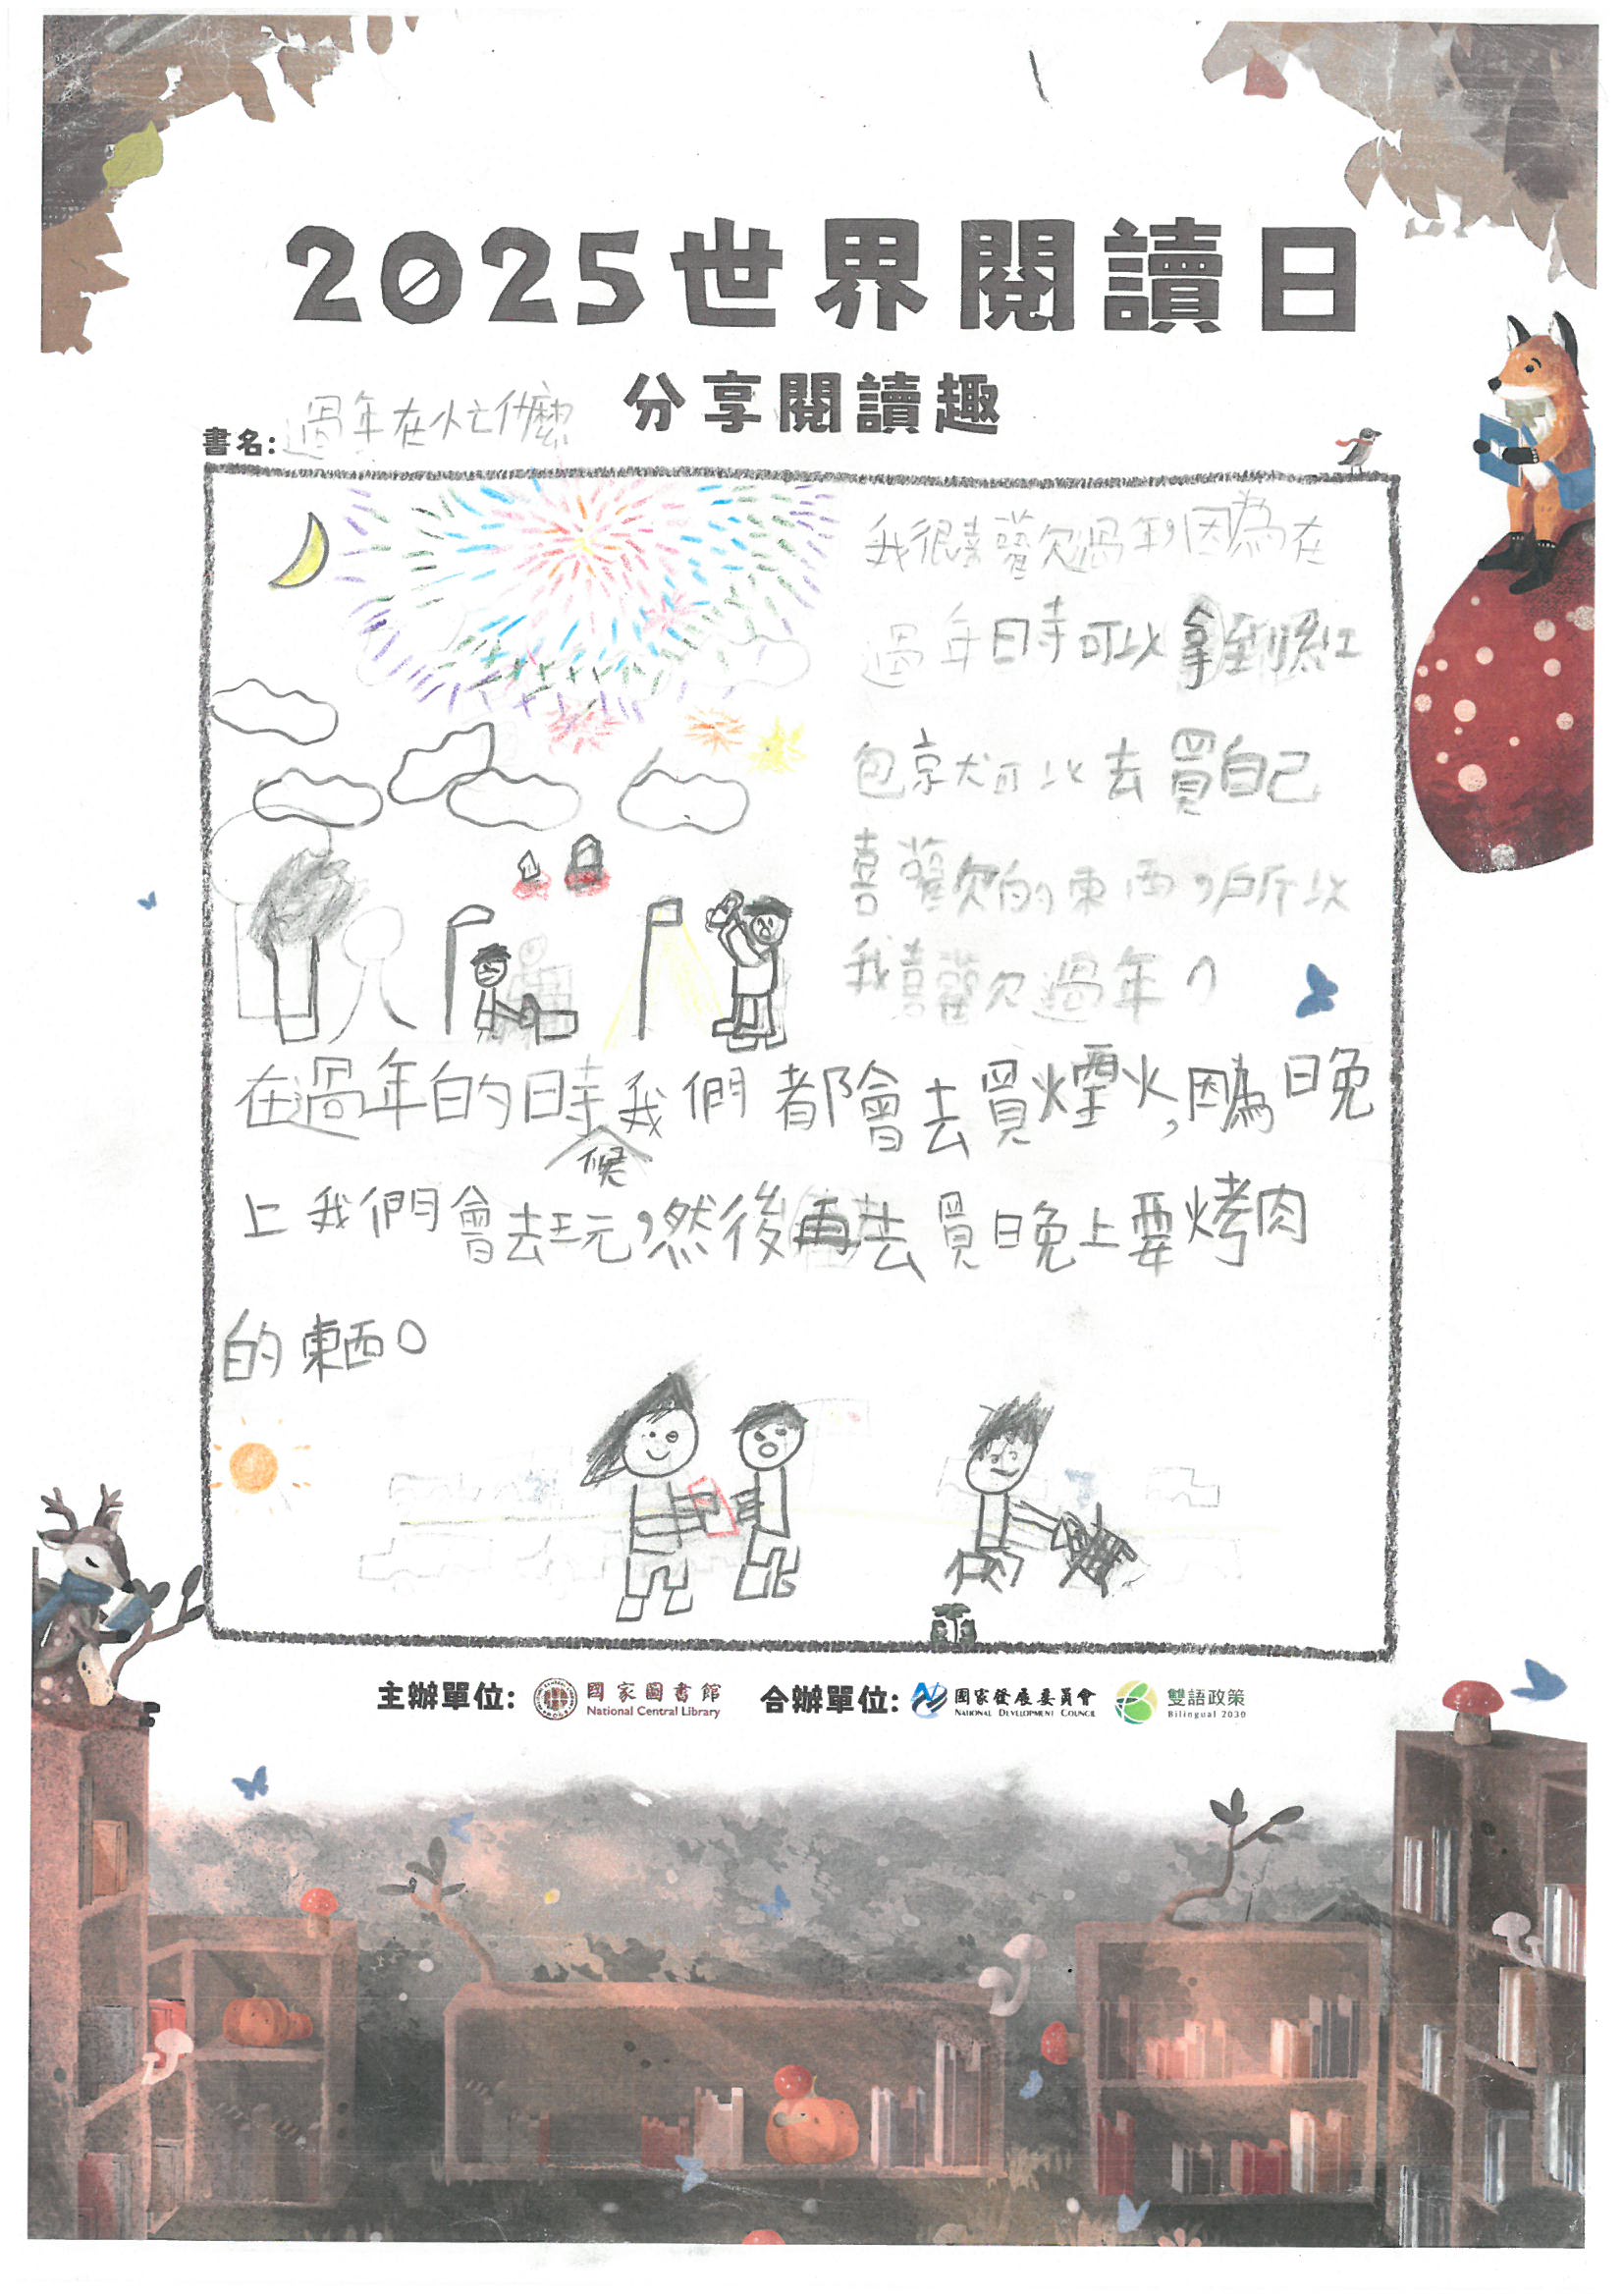 2025世界閱讀日
分享閱讀趣
書名:過年在忙什麼
我很喜歡過年,因為在
過年時可以拿到紅
包就可以去買自己
喜歡的東西,所以
我喜歡過年。
在過年的時候我們都會去買煙火,因為晚
上我們會去玩,然後再去買晚上要烤肉
的東西。
主辦單位: 國家圖書館 National Central Library 合辦單位: 國家發展委員會 NATIONAL DEVELOPMENT COUNCIL 雙語政策 Bilingual 2030